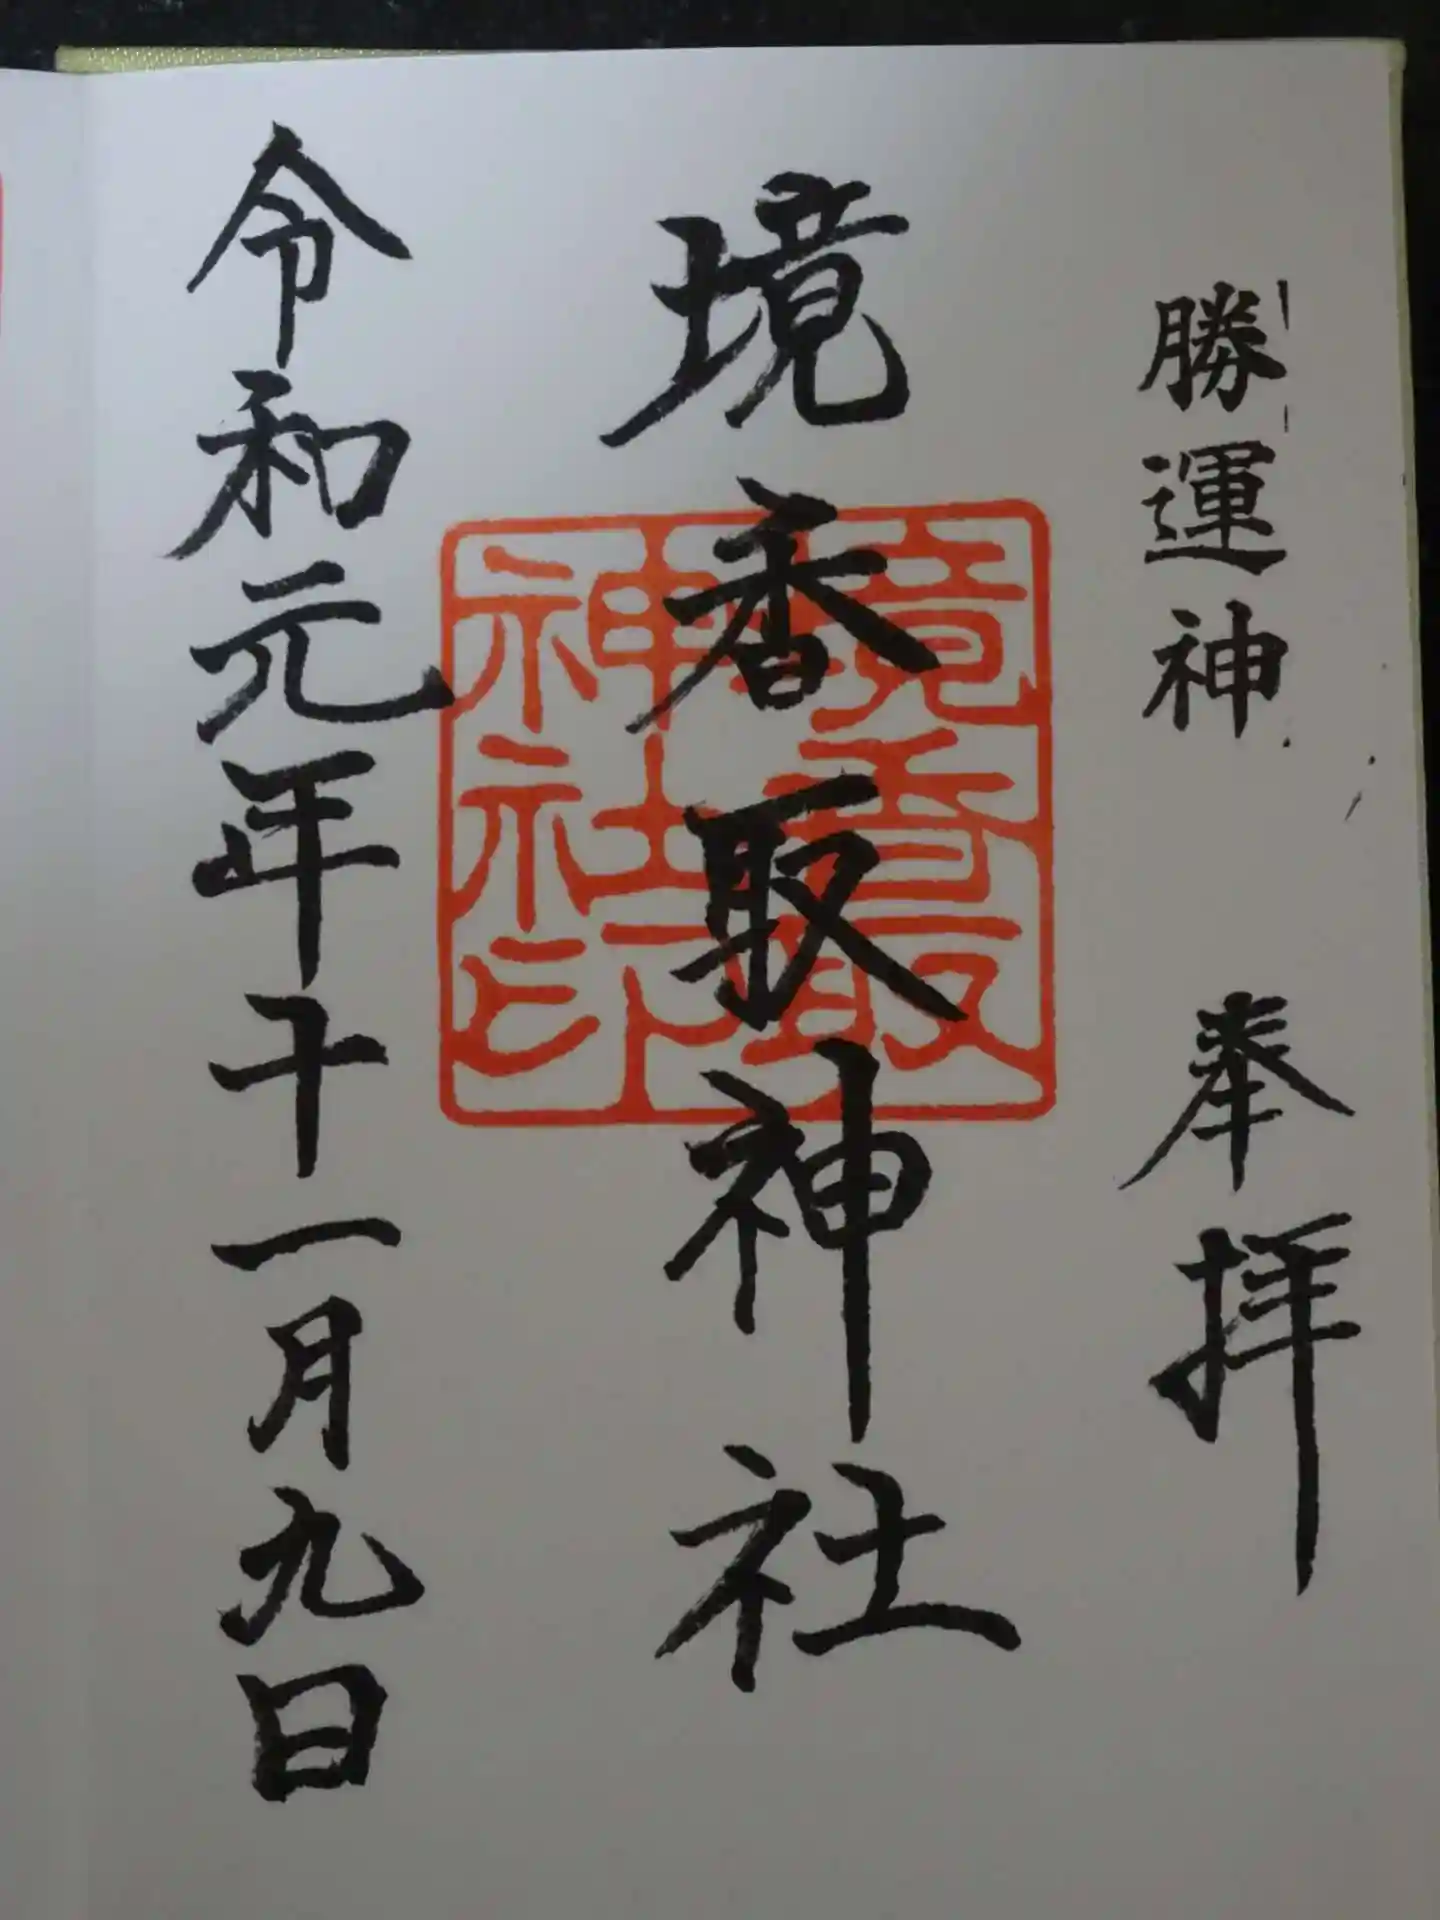 勝運神
奉拝
境香取神社
境香取
神社印
令和元年十一月九日